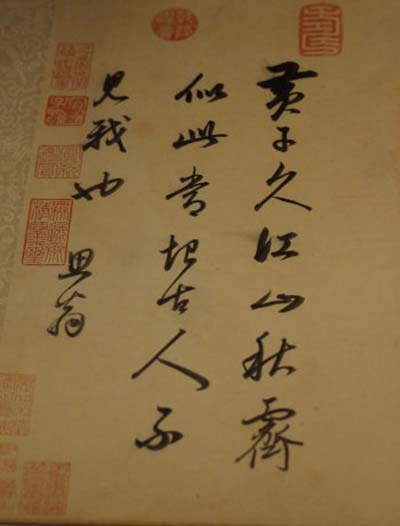 黃子久江山秋霽
似此嘗恨古人不
見我也
思翁